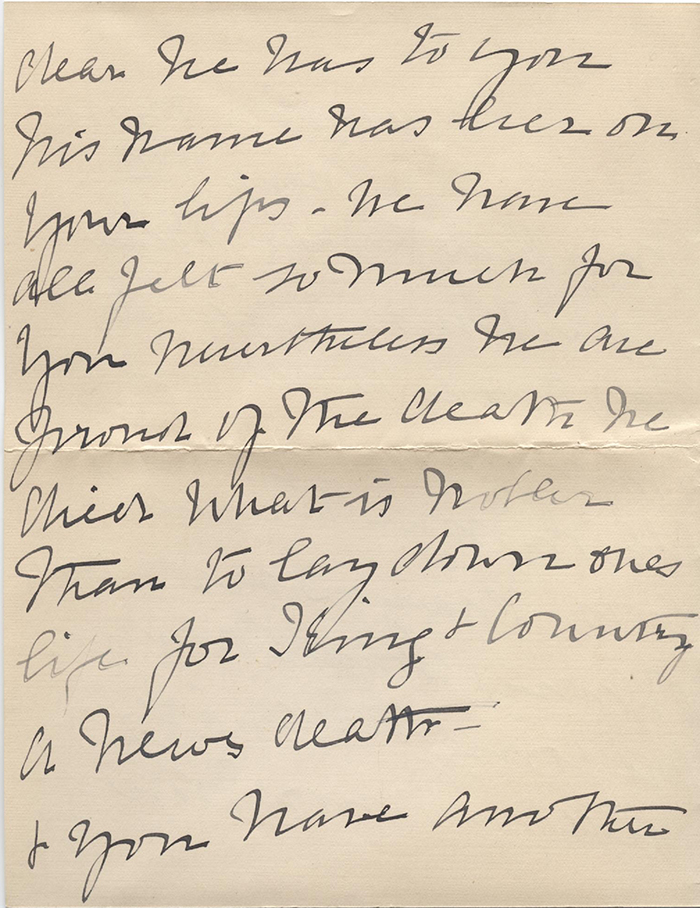 dear he was to you
his name was ever on
your lips - we have
all felt so much for
you nevertheless we are
proud of the death he
died what is nobler
than to lay down ones
life for King & Country
a hero's death -
& you have another